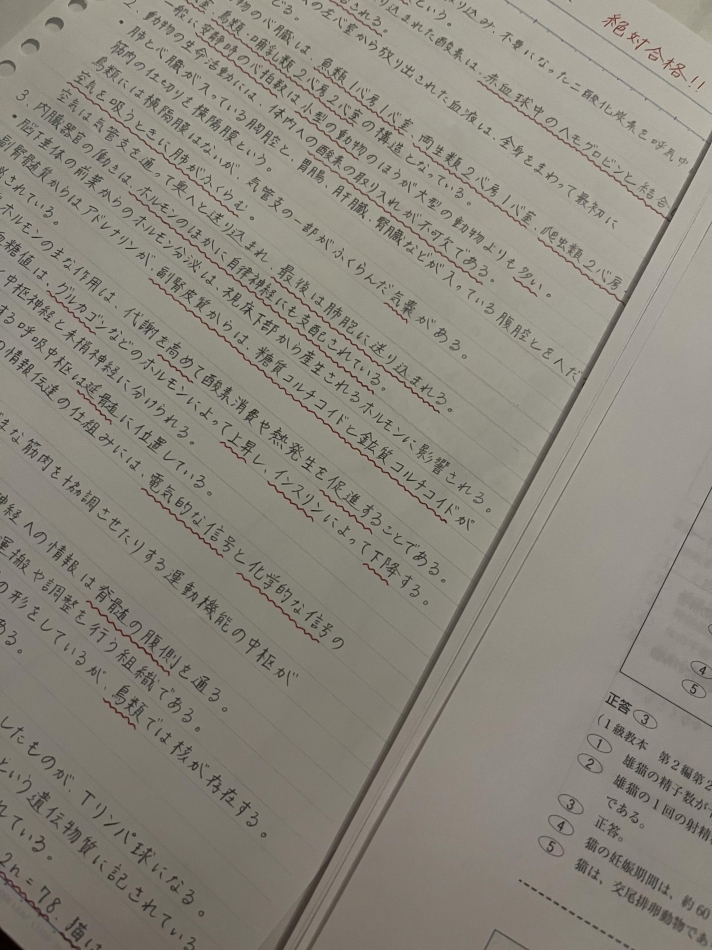 絶対合格!!
り込み、不要になった二酸化炭素を呼気中
り込まれた酸素は、赤血球中のヘモグロビンと結合
の左心室から放り出された血液は、全身をまわって最初に
動物の心臓は、魚類1心房1心室、両生類2心房1心室、爬虫類2心房
心室、鳥類・哺乳類2心房2心室の構造となっている。
一般に安静時の心拍数は小型の動物のほうが大型の動物よりも多い。
2. 動物の生命活動には、体内への酸素の取り入れが不可欠である。
・肺と心臓が入っている胸腔と、胃腸、肝臓、腎臓などが入っている腹腔とをへだ
筋肉の仕切りを横隔膜という。
鳥類には横隔膜はないが、気管支の一部がふくらんだ気嚢がある。
空気は気管支を通って奥へと送り込まれ、最後は肺胞に送り込まれる。
空気を吸うときに、肺がふくらむ。
3. 内臓器官の働きは、ホルモンのほかに自律神経にも支配されている。
・脳下垂体の前葉からのホルモン分泌は、視床下部から産生されるホルモンに影響される。
副腎髄質からはアドレナリンが、副腎皮質からは、糖質コルチコイドと鉱質コルチコイドが
されている。
ホルモンの主な作用は、代謝を高めて酸素消費や熱発生を促進することである。
血糖値は、グルカゴンなどのホルモンによって上昇し、インスリンによって下降する。
中枢神経と末梢神経に分けられる。
する呼吸中枢は延髄に位置している。
の情報伝達の仕組みには、電気的な信号と化学的な信号の
まな筋肉を協調させたりする運動機能の中枢が
神経への情報は脊髄の腹側を通る。
運搬や調整を行う組織である。
の形をしているが、鳥類では核が存在する。
ある。
したものが、Tリンパ球になる。
という遺伝物質に記されている
れている。
2n=78、猫は
④
⑤
正答 ③
(1級教本 第2編第2
① 雄猫の精子数が
② 雄猫の1回の射精
である。
③ 正答。
④ 猫の妊娠期間は、約60
⑤ 猫は、交尾排卵動物であ